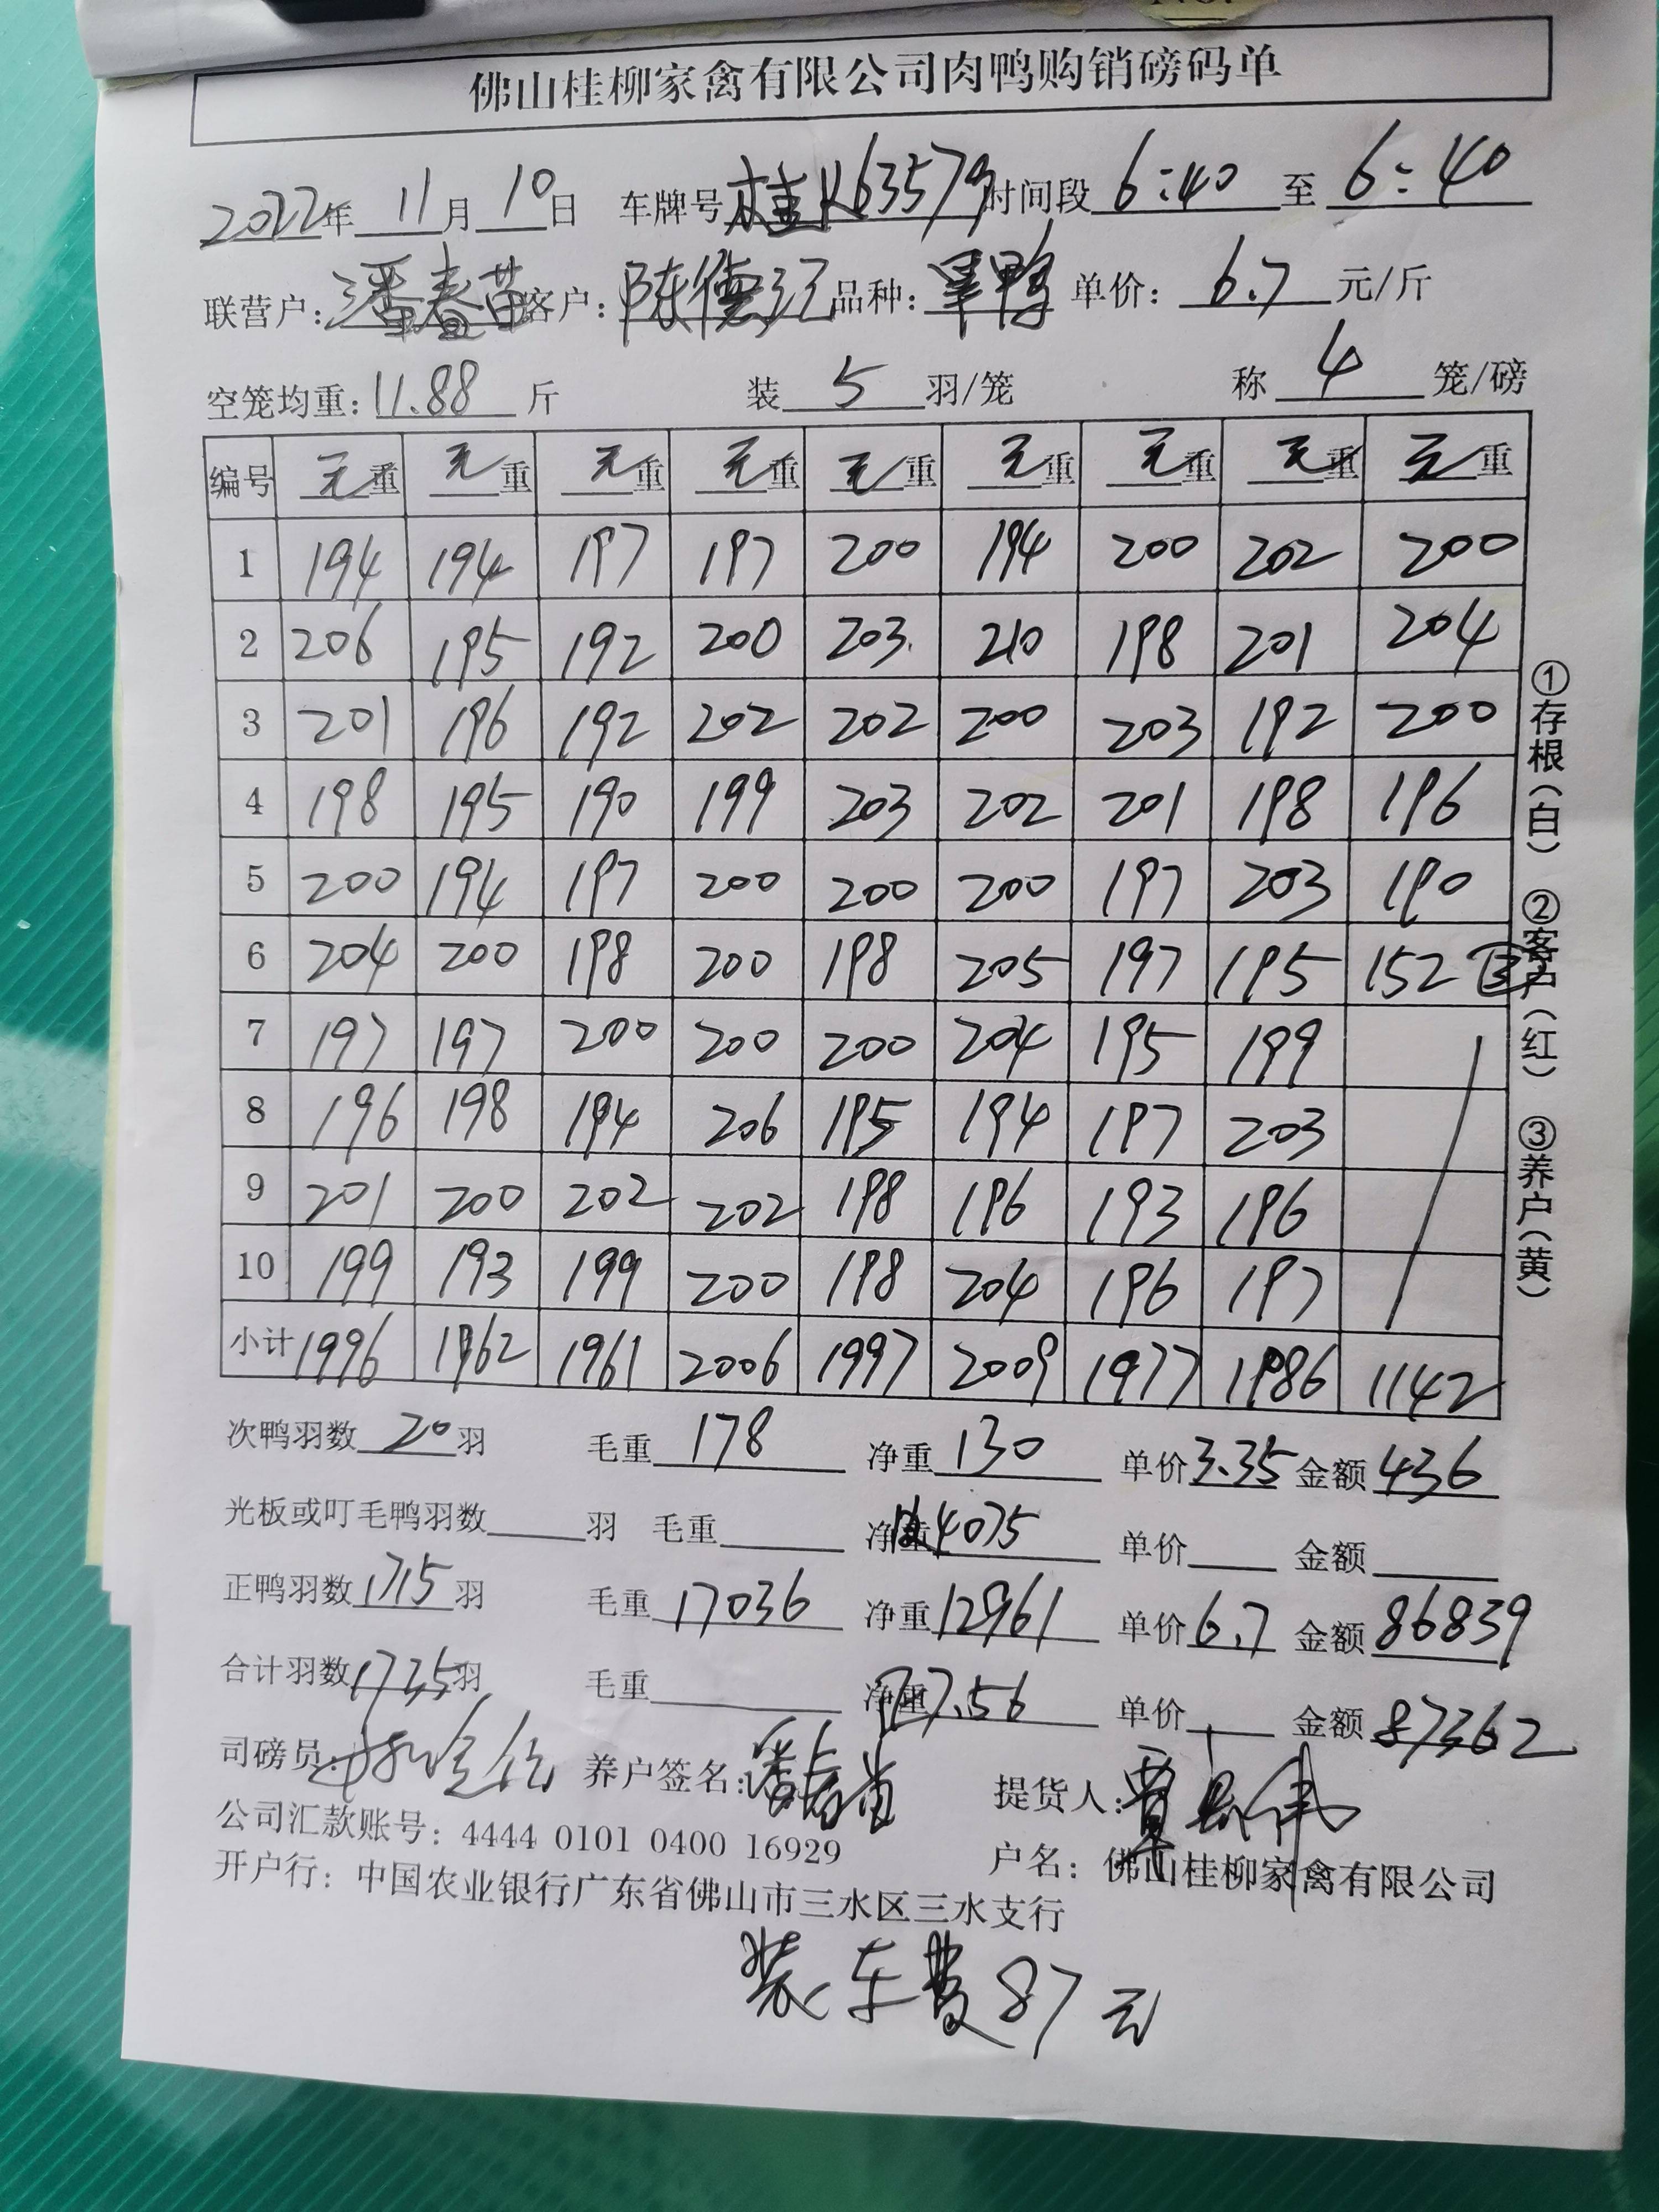 佛山桂柳家禽有限公司肉鸭购销磅码单
2022年 11月 10日 车牌号 桂K63579 时间段 6:40 至 6:40
联营户: 潘春苗 客户: 陈德江 品种: 单价: 6.7 元/斤
空笼均重: 11.88 斤 装 5 羽/笼 称 4 笼/磅
编号 毛重 毛重 毛重 毛重 毛重 毛重 毛重 毛重 毛重
1 194 194 197 197 200 194 200 202 200
2 206 195 192 200 203 210 198 201 204
3 201 196 192 202 202 200 203 192 200
4 198 195 190 199 203 202 201 198 196
5 200 194 197 200 200 200 197 203 190
6 204 200 198 200 198 205 197 195 152 ③
7 197 197 200 200 200 204 195 199
8 196 198 194 206 195 194 197 203
9 201 200 202 202 198 196 193 196
10 199 193 199 200 198 204 196 197
小计 1996 1962 1961 2006 1997 2009 1977 1986 1142
①存根(白) ②客户(红) ③养户(黄)
次鸭羽数 20 羽 毛重 178 净重 130 单价 3.35 金额 436
光板或叮毛鸭羽数 羽 毛重 净重 4075 单价 金额
正鸭羽数 1715 羽 毛重 17036 净重 12961 单价 6.7 金额 86839
合计羽数 1735 羽 毛重 净重 7.56 单价 金额 87362
司磅员: 养户签名: 潘春苗 提货人:
公司汇款账号: 4444 0101 0400 16929 户名: 佛山桂柳家禽有限公司
开户行: 中国农业银行广东省佛山市三水区三水支行
装车费 87 元